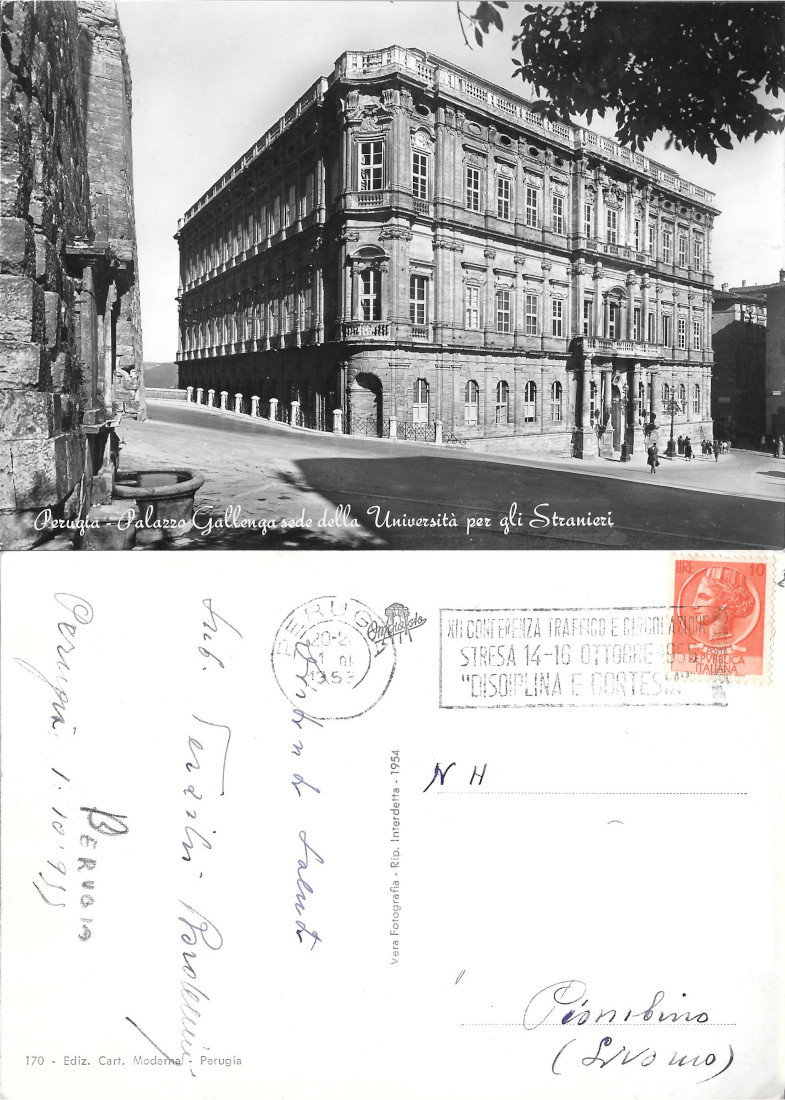 Perugia - Palazzo Gallenga sede della Università per gli Stranieri
PERUGIA
1955
XII CONFERENZA TRAFFICO E CIRCOLAZIONE
STRESA 14-16 OTTOBRE 1955
"DISCIPLINA E CORTESIA"
LIRE 10
POSTE
REPUBBLICA
ITALIANA
Perugia 1·10·955
PERUGIA
Saluti
Vera Fotografia - Rip. Interdetta - 1954
N H
Piombino
(Livorno)
170 - Ediz. Cart. Moderna - Perugia